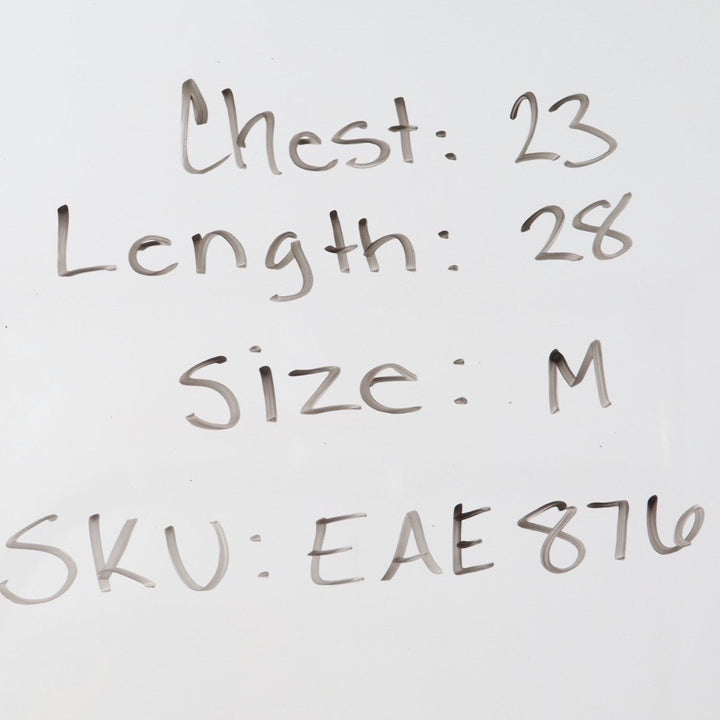 Chest: 23
Length: 28
Size: M
SKU: EAE876